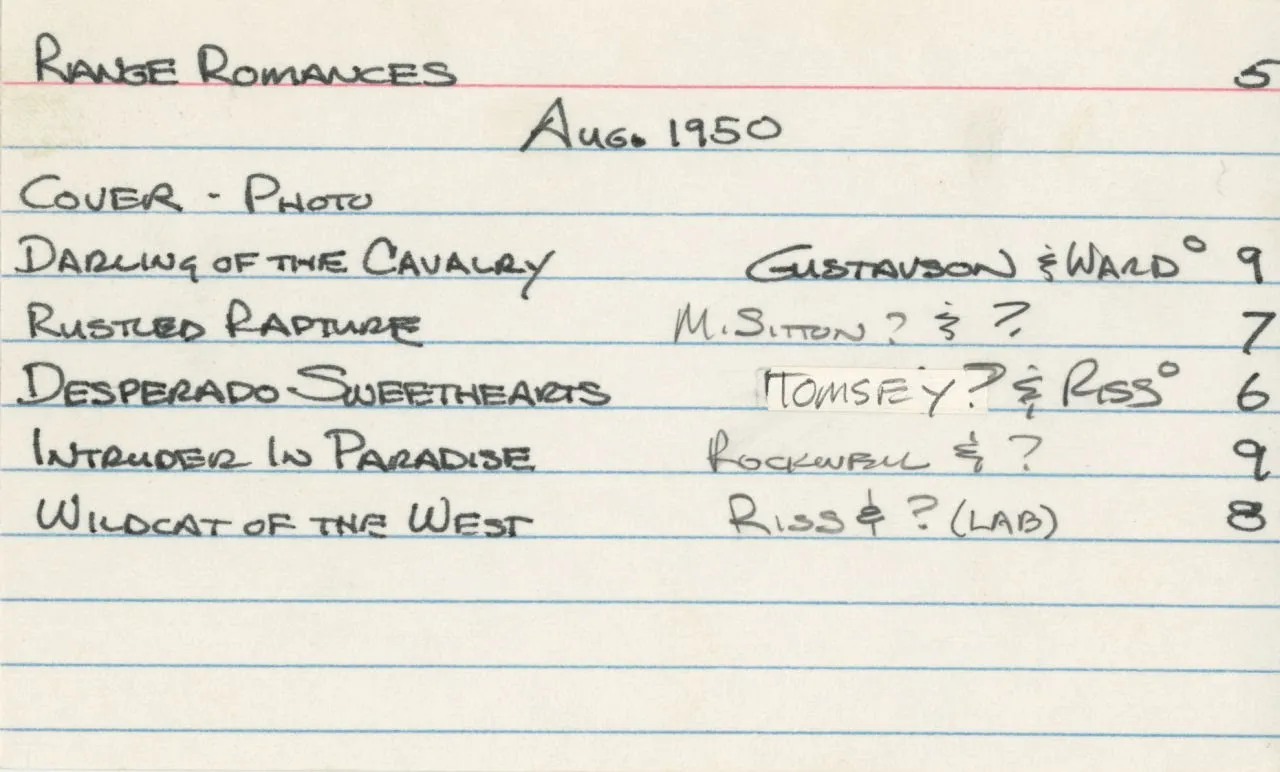 RANGE ROMANCES 5
AUG. 1950
COVER - PHOTO
DARLING OF THE CAVALRY GUSTAVSON & WARD° 9
RUSTLED RAPTURE M. SITTON ? & ? 7
DESPERADO SWEETHEARTS TOMSEY? & RISS° 6
INTRUDER IN PARADISE ROCKWELL & ? 9
WILDCAT OF THE WEST RISS & ? (LAB) 8